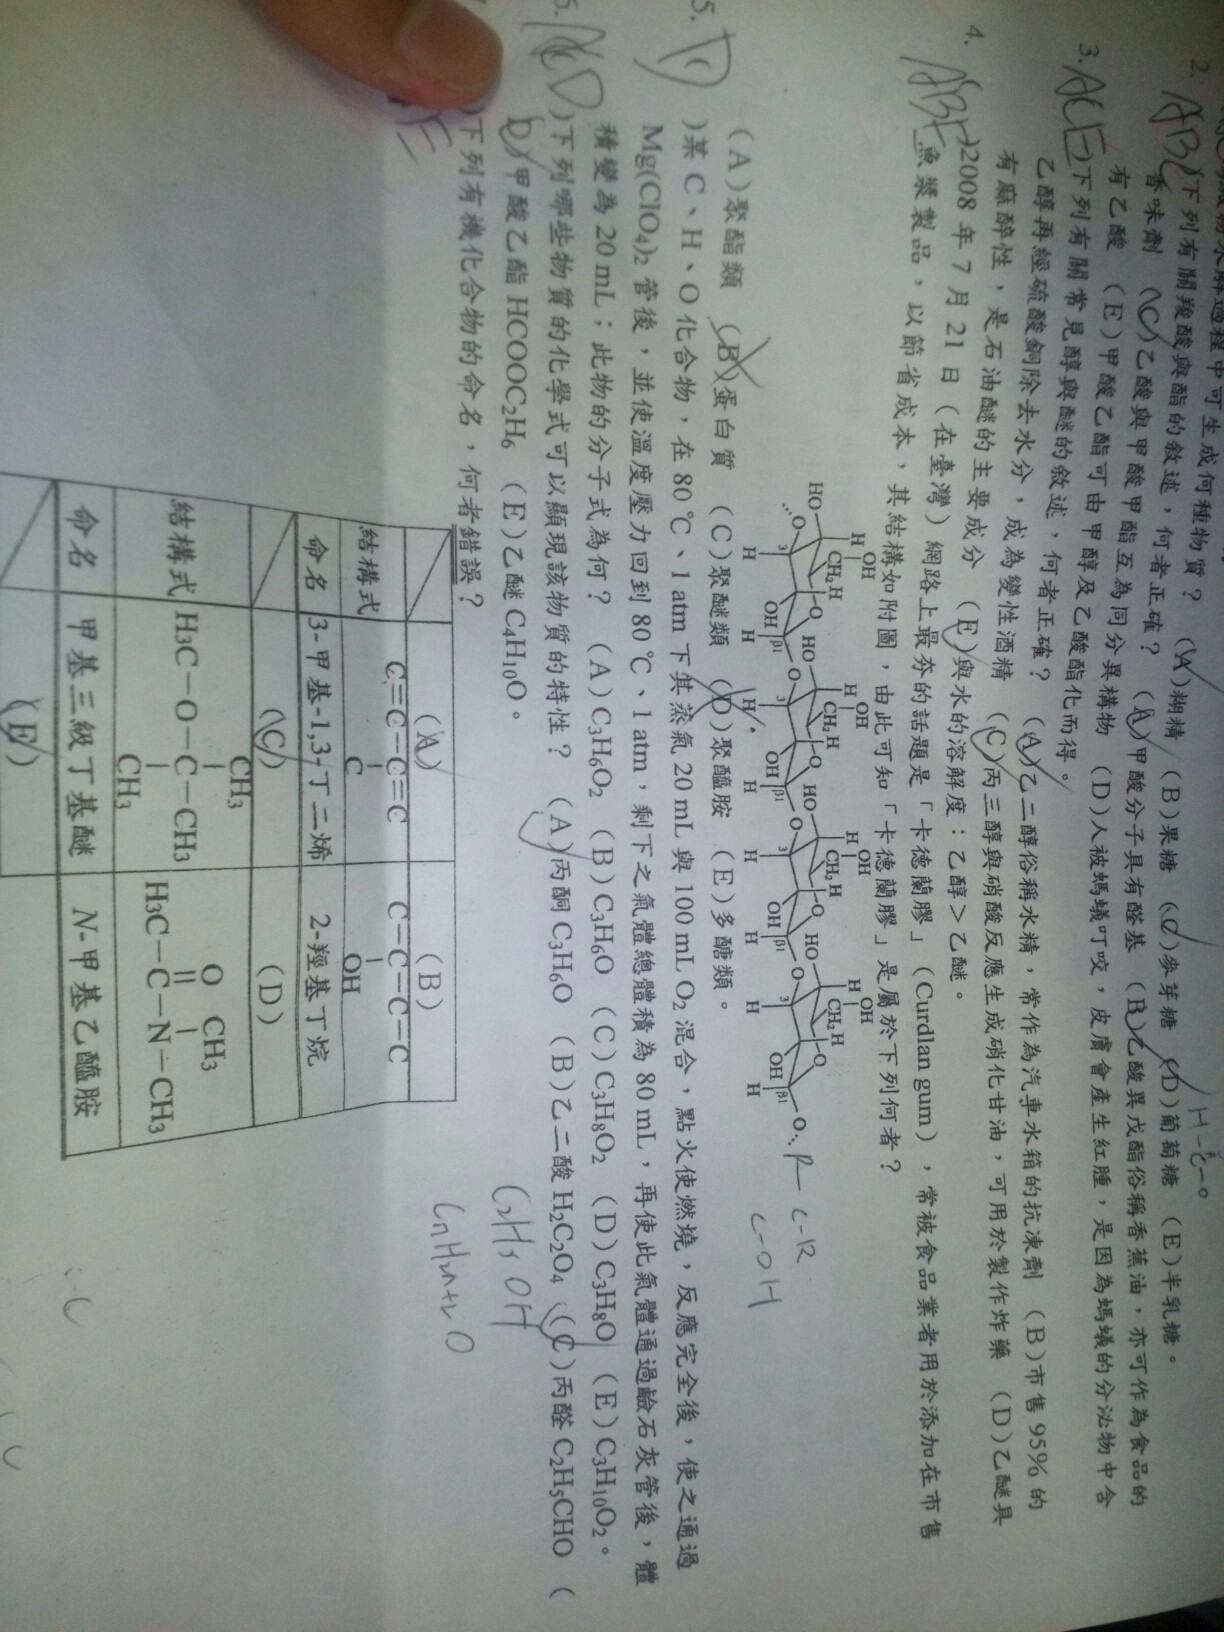 解過程中可生成何種物質? (A)糊精 (B)果糖 (C)麥芽糖 (D)葡萄糖 (E)半乳糖。
2. ABC )下列有關羧酸與酯的敘述,何者正確? (A)甲酸分子具有醛基 (B)乙酸異戊酯俗稱香蕉油,亦可作為食品的
香味劑 (C)乙酸與甲酸甲酯互為同分異構物 (D)人被螞蟻叮咬,皮膚會產生紅腫,是因為螞蟻的分泌物中含
有乙酸 (E)甲酸乙酯可由甲醇及乙酸酯化而得。
3. ACE )下列有關常見醇與醚的敘述,何者正確? (A)乙二醇俗稱水精,常作為汽車水箱的抗凍劑 (B)市售95%的
乙醇再經硫酸銅除去水分,成為變性酒精 (C)丙三醇與硝酸反應生成硝化甘油,可用於製作炸藥 (D)乙醚具
有麻醉性,是石油醚的主要成分 (E)與水的溶解度:乙醇>乙醚。
4. )2008年7月21日(在臺灣)網路上最夯的話題是「卡德蘭膠」(Curdlan gum),常被食品業者用於添加在市售
魚漿製品,以節省成本,其結構如附圖,由此可知「卡德蘭膠」是屬於下列何者?
H OH H OH H OH H OH
CH2 H CH2 H CH2 H CH2 H
HO O HO O HO O HO O
…O 3 OH β1 O 3 OH β1 O 3 OH β1 O 3 OH β1 O… R — C-R
H H H H H H H H C-OH
(A)聚酯類 (B)蛋白質 (C)聚醚類 (D)聚醯胺 (E)多醣類。
5. )某C、H、O化合物,在80℃、1 atm下其蒸氣20 mL與100 mL O2混合,點火使燃燒,反應完全後,使之通過
Mg(ClO4)2管後,並使溫度壓力回到80℃、1 atm,剩下之氣體總體積為80 mL,再使此氣體通過鹼石灰管後,體
積變為20 mL;此物的分子式為何? (A)C3H6O2 (B)C3H6O (C)C3H8O2 (D)C3H8O (E)C3H10O2。
6. )下列哪些物質的化學式可以顯現該物質的特性? (A)丙酮C3H6O (B)乙二酸H2C2O4 (C)丙醛C2H5CHO (
D)甲酸乙酯HCOOC2H6 (E)乙醚C4H10O。 C2H5OH
)下列有機化合物的命名,何者錯誤? CnH2n+2O
(A) (B)
結構式 C=C-C=C C C-C-C-C OH
命名 3-甲基-1,3-丁二烯 2-羥基丁烷
(C) (D)
結構式 H3C-O-C-CH3 CH3 CH3 H3C-C-N-CH3 O CH3
命名 甲基三級丁基醚 N-甲基乙醯胺
(E)